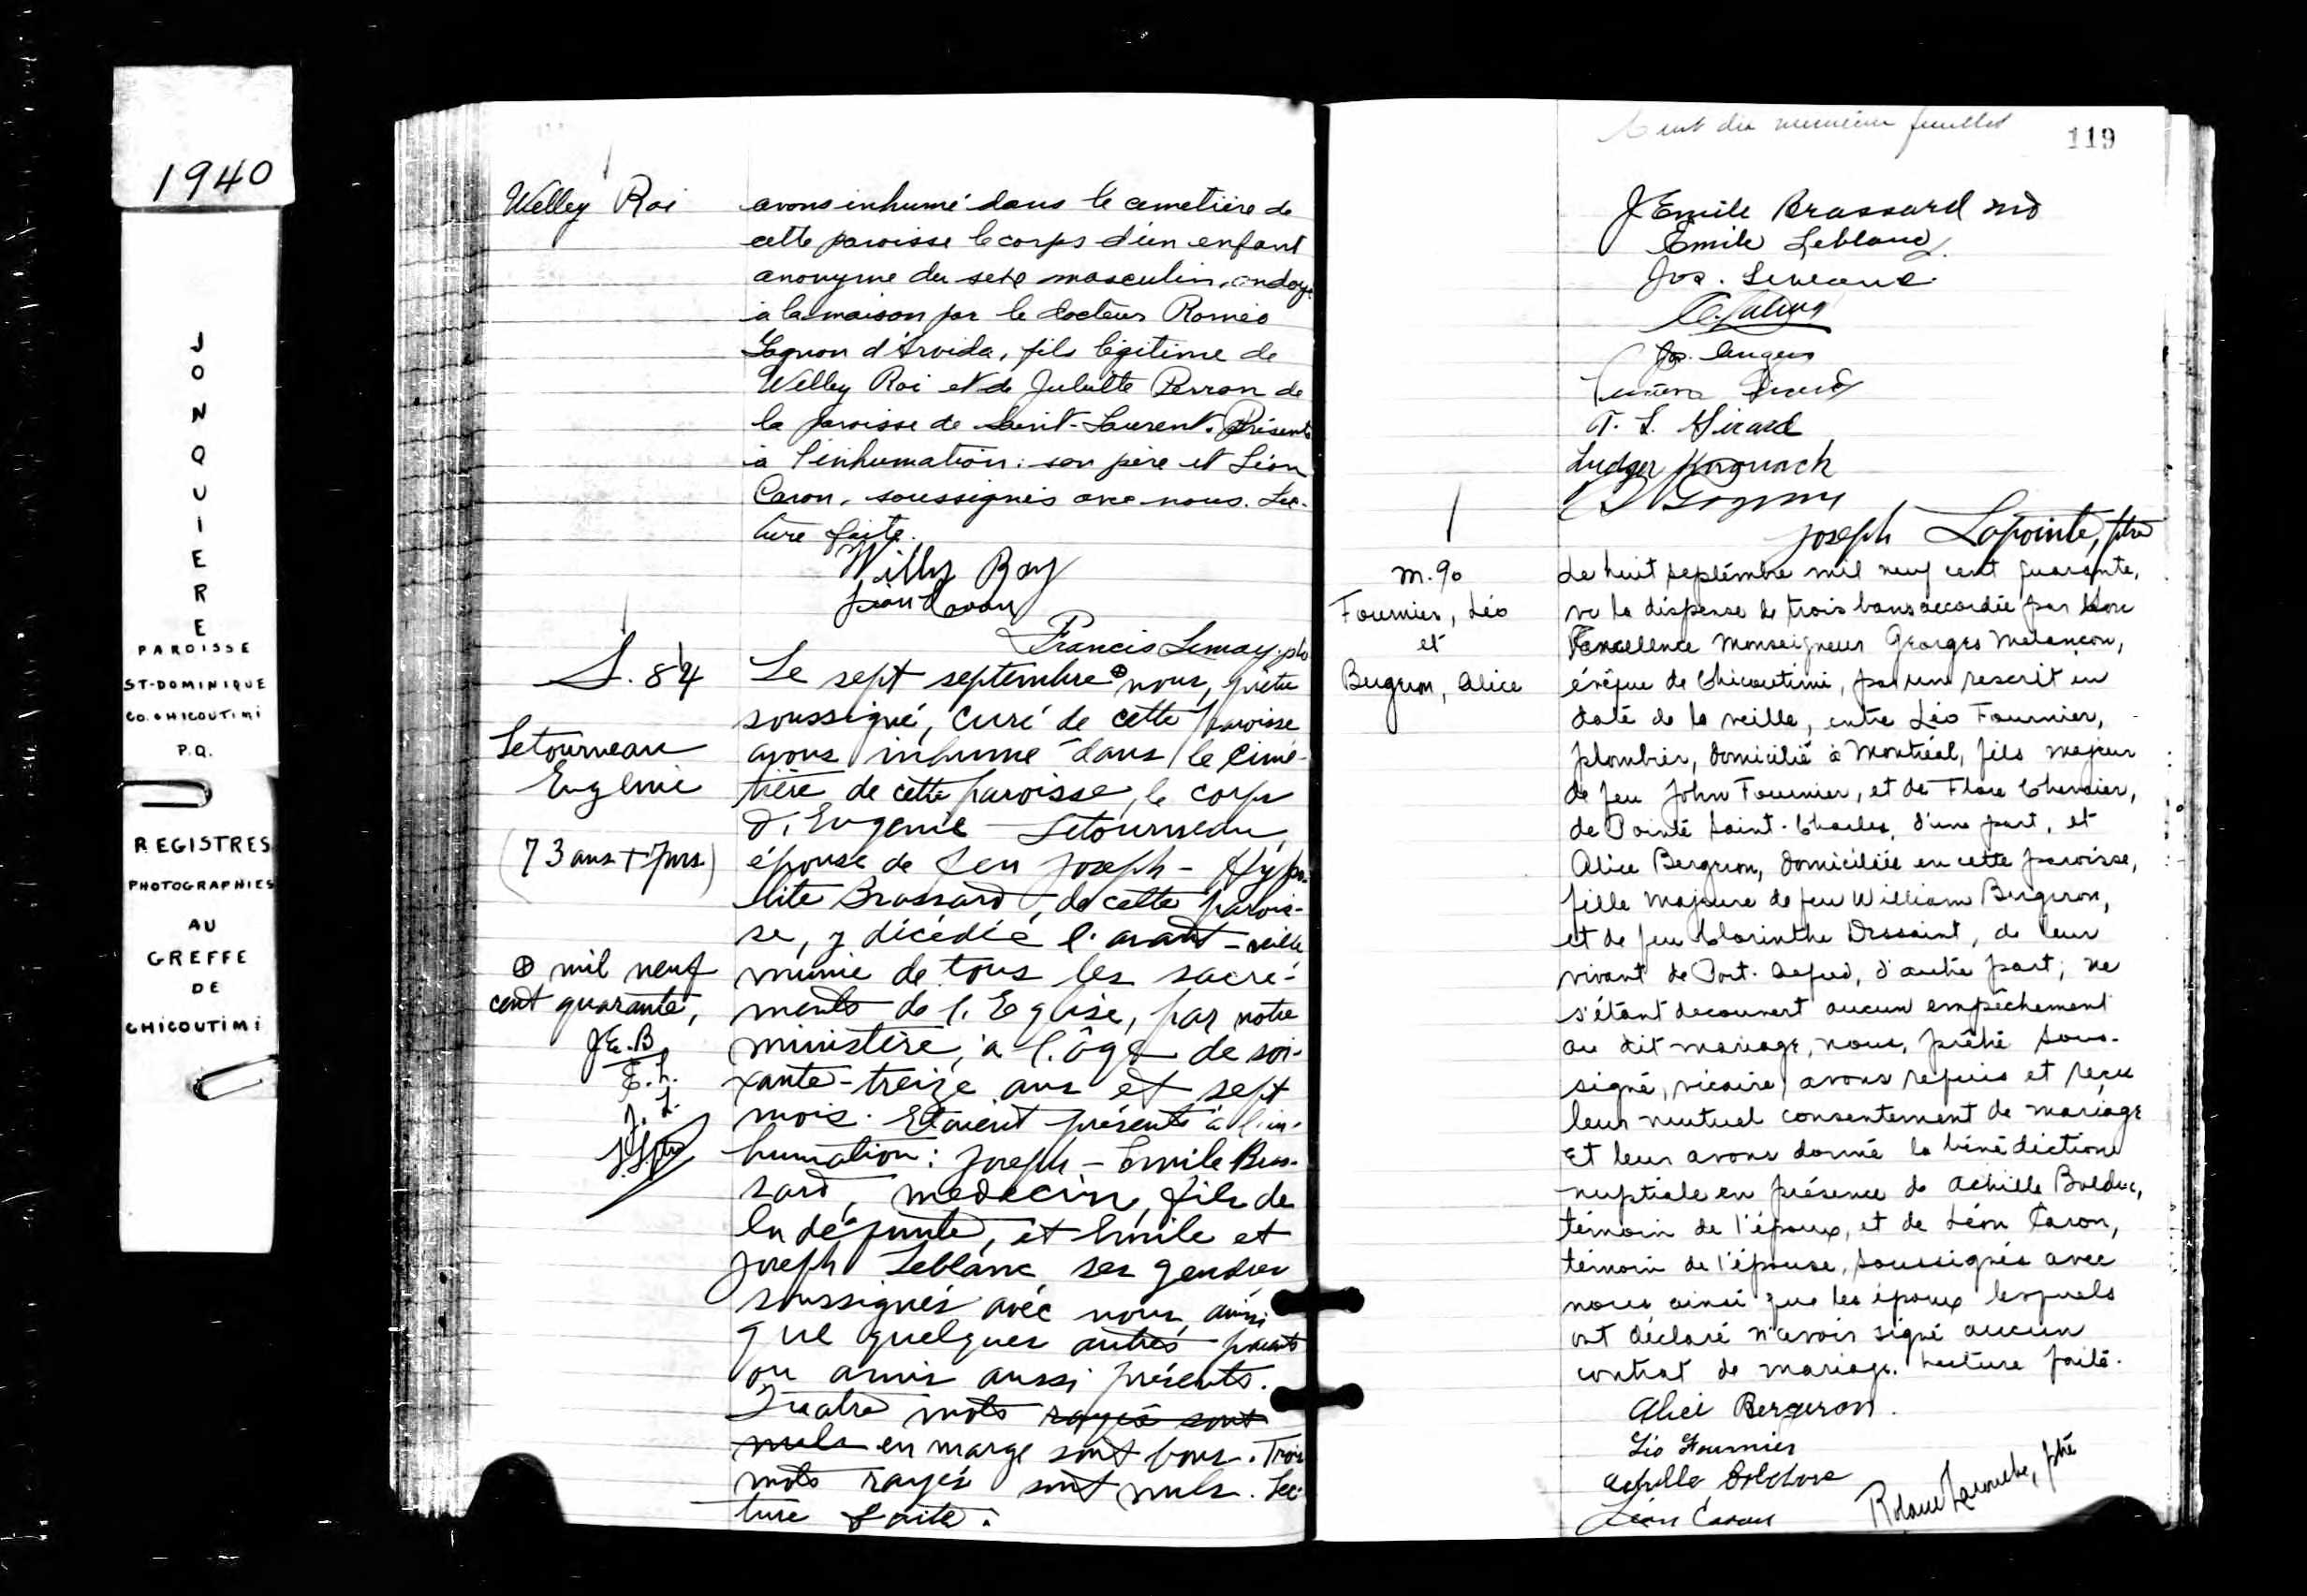 1940
JONQUIERE
PAROISSE
ST-DOMINIQUE
CO. CHICOUTIMI
P.Q.
REGISTRES
PHOTOGRAPHIES
AU
GREFFE
DE
CHICOUTIMI
Welley Roi
avons inhumé dans le cimetière de
cette paroisse le corps d'un enfant
anonyme du sexe masculin, ondoyé
à la maison par le docteur Roméo
Gagnon d'Arvida, fils légitime de
Welley Roi et de Juliette Perron de
la paroisse de Saint-Laurent. Présents
à l'inhumation: son père et Léon
Caron, soussignés avec nous. Lec-
ture faite.
Willy Roy
Léon Caron
Francis Lemay, ptre
S. 84
Letourneau
Eugénie
(73 ans + 7 ms)
⊕ mil neuf
cent quarante,
J.E.B
E.L.
J.L.
J.L. ptre
Le sept septembre ⊕ nous, prêtre
soussigné, curé de cette paroisse
avons inhumé dans le cime-
tière de cette paroisse, le corps
d'Eugénie Letourneau,
épouse de feu Joseph-Hypo-
lite Brassard, de cette parois-
se, y décédée l'avant-veille
munie de tous les sacre-
ments de l'Eglise, par notre
ministère, à l'âge de soi-
xante-treize ans et sept
mois. Etaient présents à l'in-
humation: Joseph-Emile Bras-
sard, médecin, fils de
la défunte, et Emile et
Joseph Leblanc ses gendres
soussignés avec nous, ainsi
que quelques autres parents
ou amis aussi présents.
Quatre mots rayés sont
nuls en marge sont bons. Trois
mots rayés sont nuls. Lec-
ture faite.
Cent dix neuvième feuillet
119
J Emile Brassard md
Emile Leblanc
Jos. Leblanc
Jos. Angers
T. L. Girard
Ludger
Joseph Lapointe, ptre
m. 90
Fournier, Léo
et
Bergeron, Alice
Le huit septembre mil neuf cent quarante,
vu la dispense de trois bans accordée par Son
Excellence Monseigneur Georges Melançon,
évêque de Chicoutimi, par un rescrit en
date de la veille, entre Léo Fournier,
plombier, domicilié à Montréal, fils majeur
de feu John Fournier, et de Flore Chevrier,
de Pointe Saint-Charles, d'une part, et
Alice Bergeron, domiciliée en cette paroisse,
fille majeure de feu William Bergeron,
et de feu Clorinthe Dessaint, de leur
vivant de Port-Alfred, d'autre part; ne
s'étant découvert aucun empêchement
au dit mariage, nous, prêtre sous-
signé, vicaire, avons requis et reçu
leur mutuel consentement de mariage
et leur avons donné la bénédiction
nuptiale en présence de Achille Bolduc,
témoin de l'époux, et de Léon Caron,
témoin de l'épouse, soussignés avec
nous ainsi que les époux lesquels
ont déclaré n'avoir signé aucun
contrat de mariage. Lecture faite.
Alice Bergeron.
Léo Fournier
Achille Bolduc
Léon Caron
Roland Larouche, ptre